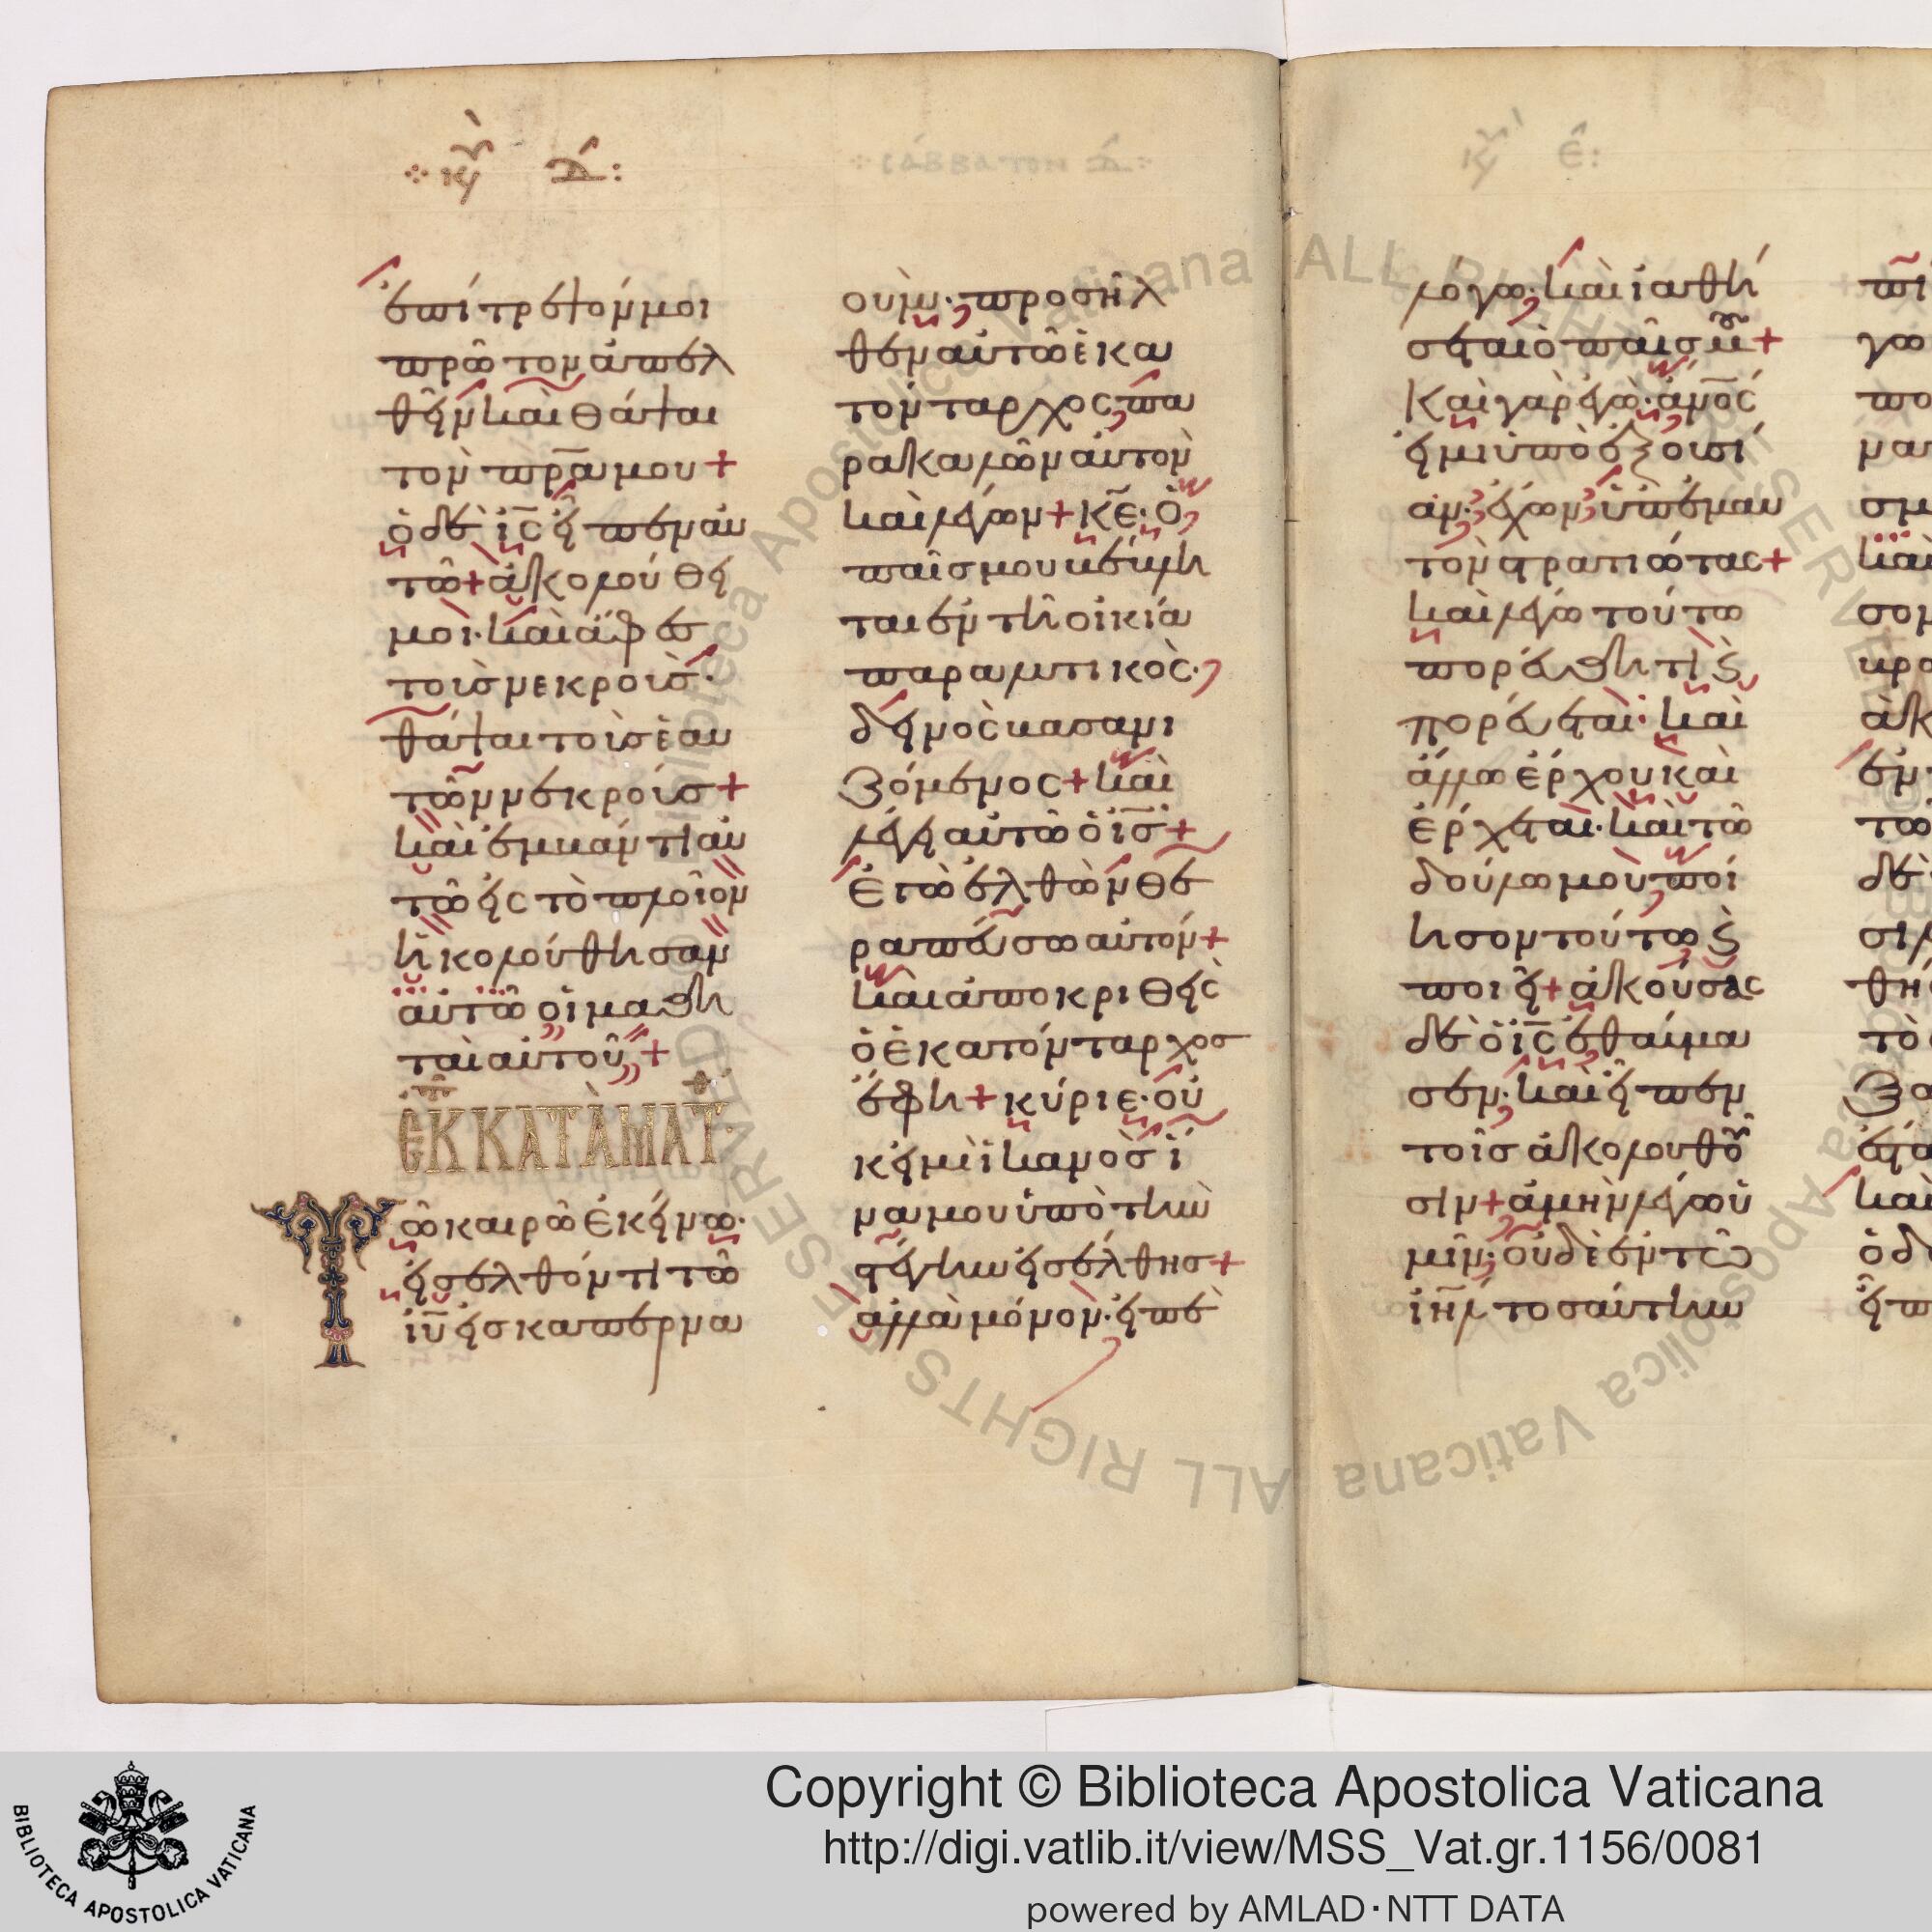 κυ Δ:
ἐπίτρεψόν μοι
πρῶτον ἀπελ
θεῖν καὶ θάψαι
τὸν πρα μου +
ὁ δὲ ις εἶπεν αὐ
τῶ + ἀκολούθει
μοι· καὶ ἄφες
τοὺς νεκροὺς·
θάψαι τοὺς ἑαυ
τῶν νεκρούς +
καὶ ἐμβάντι αὐ
τῶ εἰς τὸ πλοῖον
ἠκολούθησαν
αὐτῶ οἱ μαθη
ταὶ αὐτοῦ +
ἘΚ Κ ΑΤᾺ ΜΑΤ
Τῶ καιρῶ ἐκείνω·
εἰσελθόντι τῶ
ιυ εἰς καπερνα
ΣΑΒΒΑΤΟΝ Δ:
ουμ· προσῆλ
θεν αὐτῶ ἑκα
τόνταρχος πα
ρακαλῶν αὐτὸν
καὶ λέγων + κε· ὁ
παῖς μου βέβλη
ται ἐν τῆ οἰκία
παραλυτικὸς·
δεινὸς βασανι
ζόμενος + καὶ
λέγει αὐτῶ ὁ ις +
ἐγὼ ἐλθὼν θε
ραπεύσω αὐτόν +
καὶ ἀποκριθεὶς
ὁ ἑκατόνταρχος
ἔφη + κύριε· οὐκ
εἰμὶ ἱκανὸς ἵ
να μου ὑπὸ τὴν
στέγην εἰσέλθης +
ἀλλὰ μόνον· εἰπὲ
κυ Ε:
λόγω· καὶ ἰαθή
σεται ὁ παῖς μου +
καὶ γὰρ ἐγὼ· ἄνος
εἰμι ὑπὸ ἐξουσί
αν· ἔχων ὑπ' ἐμαυ
τὸν στρατιώτας +
καὶ λέγω τούτω
πορεύθητι κ
πορεύεται· καὶ
ἄλλω ἔρχου καὶ
ἔρχεται· καὶ τῶ
δούλω μου· ποί
ησον τοῦτο κ
ποιεῖ + ἀκούσας
δὲ ὁ ις ἐθαύμα
σεν· καὶ εἶπεν
τοῖς ἀκολουθοῦ
σιν + ἀμὴν λέγω ὑ
μῖν· οὐδὲ ἐν τῶ
ιηλ τοσαύτην
πι
γω
πο
ναν
σμ
καὶ
σον
βρυ
ἀκ
ἐν
τω
δὲ
σιλ
θή
τὸ
ζο
καὶ
ὁ δ
εἶπ
Copyright © Biblioteca Apostolica Vaticana
http://digi.vatlib.it/view/MSS_Vat.gr.1156/0081
powered by AMLAD·NTT DATA
BIBLIOTECA APOSTOLICA VATICANA